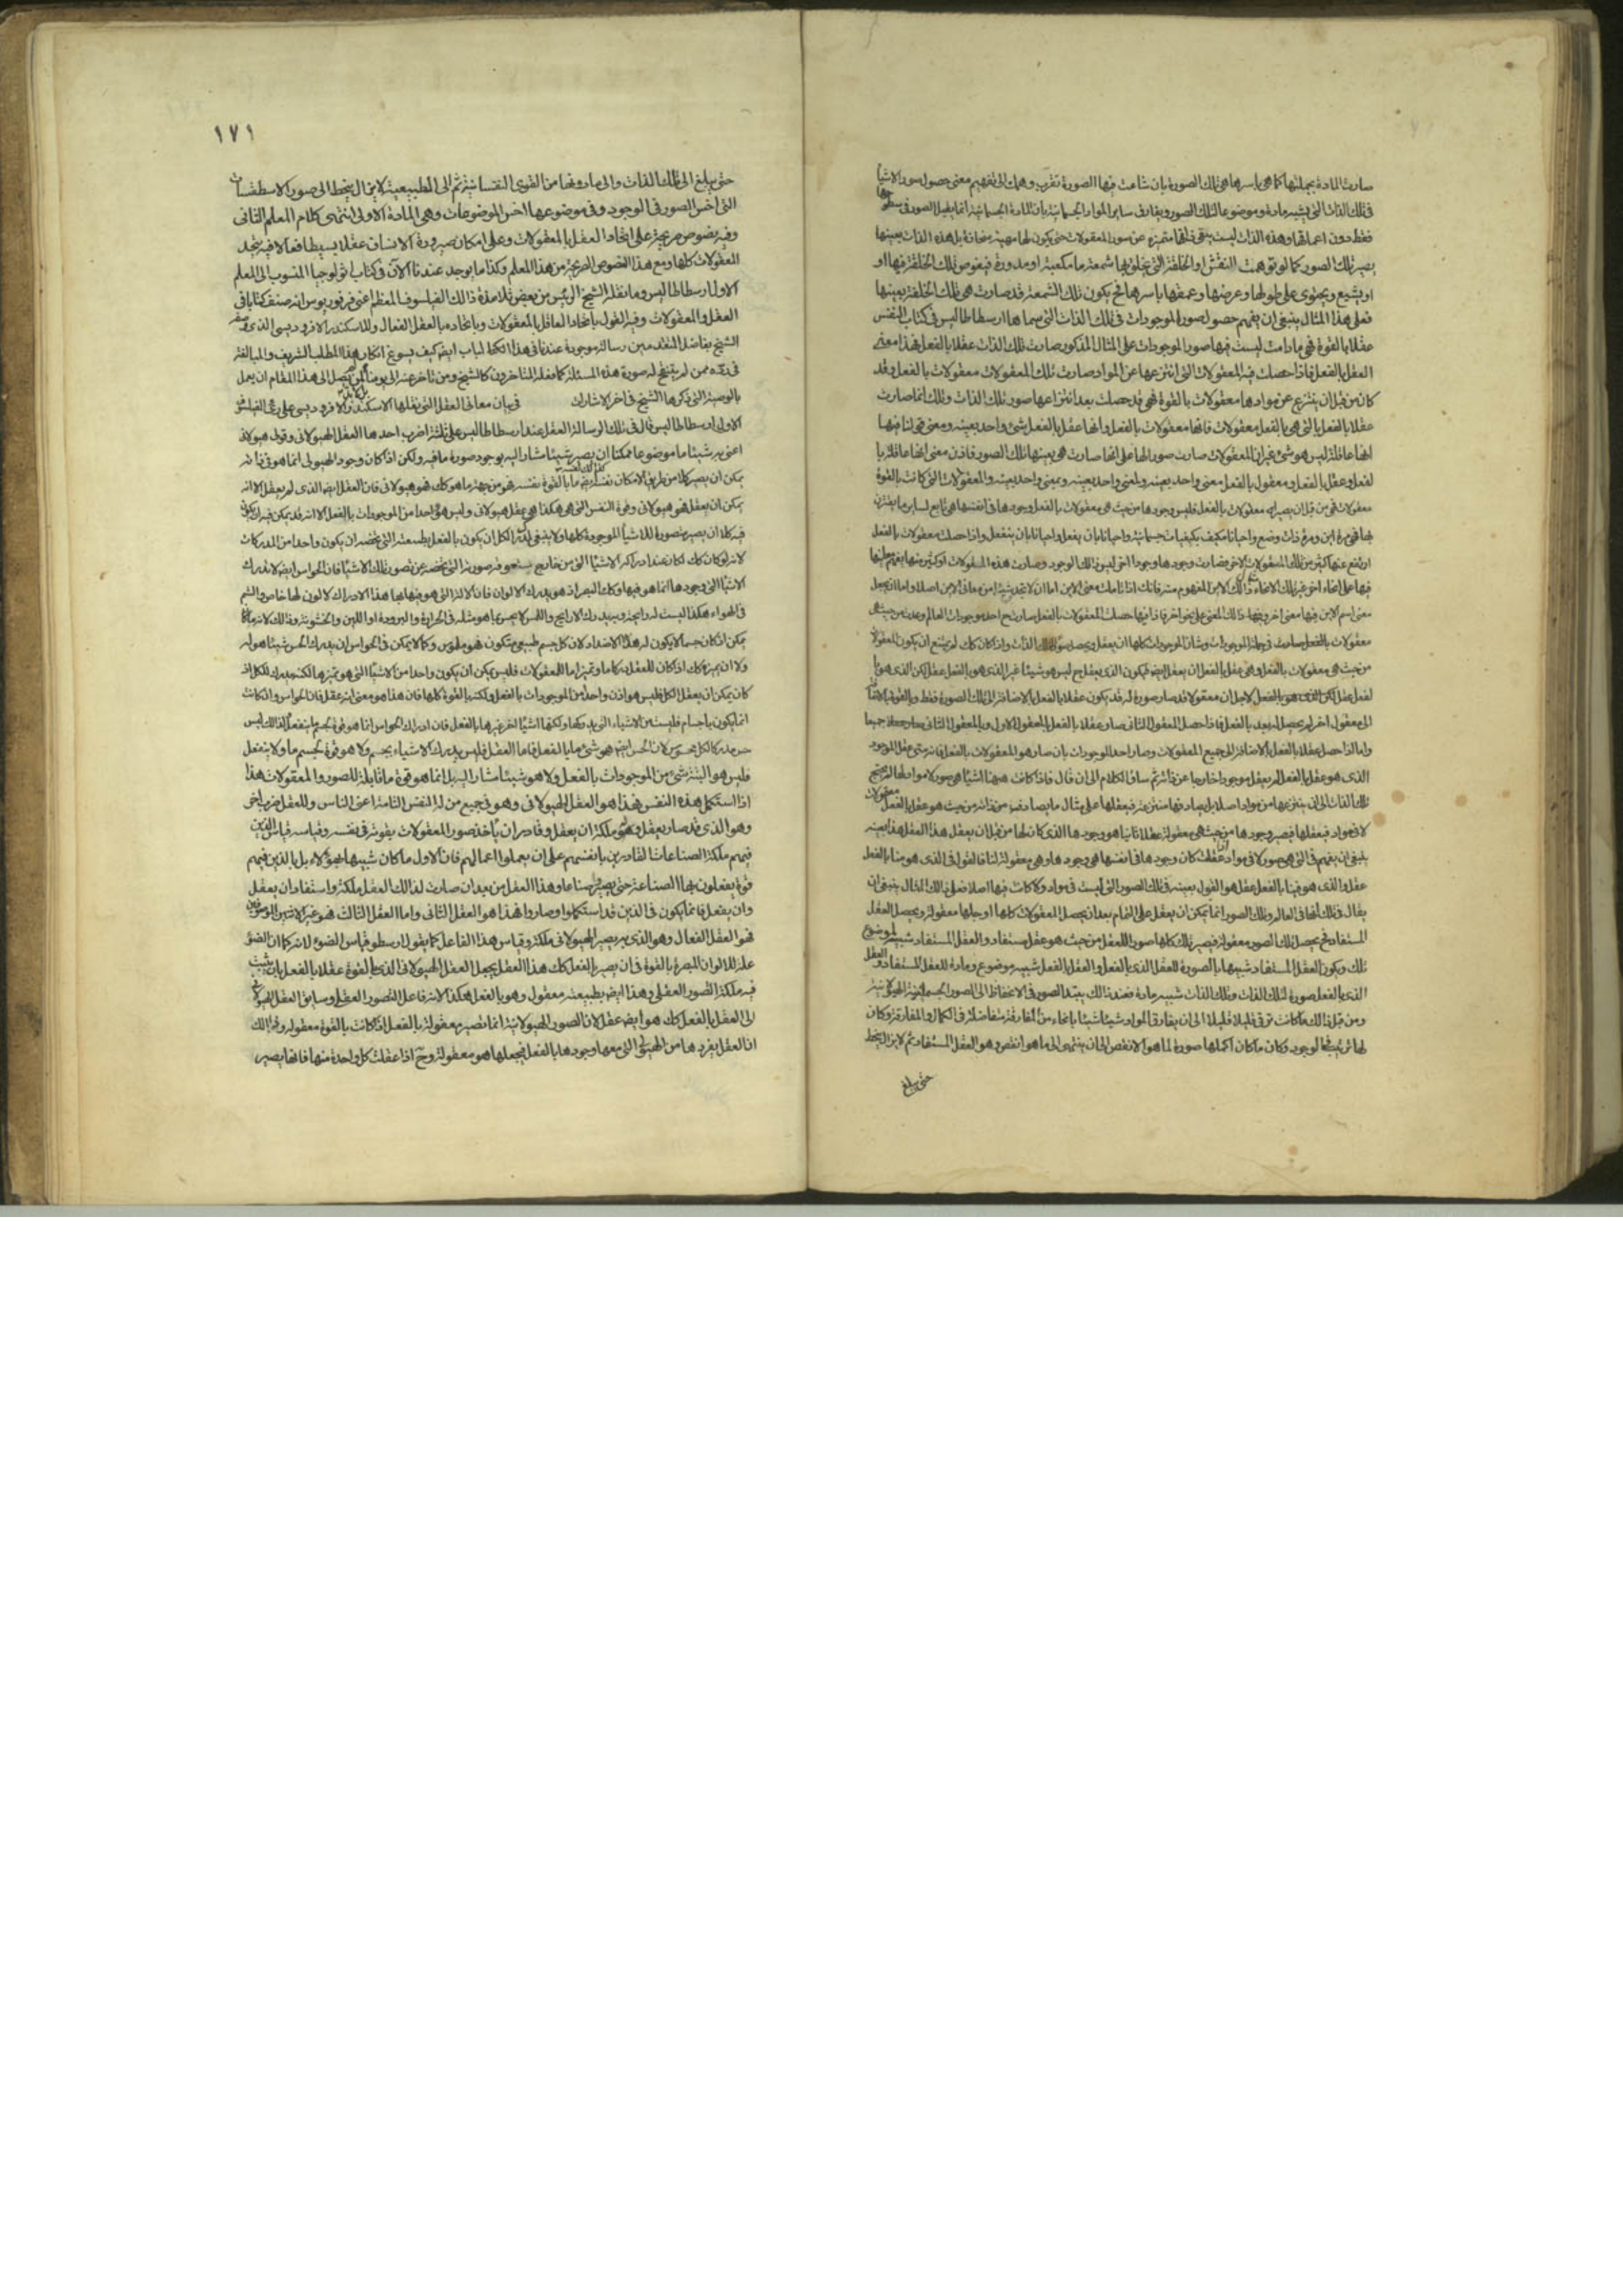 صارت المادة بجملتها كما هى باسرها هى تلك الصورة بان شاعت فيها الصورة تقريب وهمك الى تفهيم معنى حصول صور الاشيا
فى تلك الذات التى يشبه مادة وموضوعا لتلك الصور ويفارق ساير المواد الجسمانية بان المادة الجسمانية انما يقبل الصور فى سطوحها
فقط دون اعماقها وهذه الذات ليست يبقى ذاتها متميزة عن صور المعقولات حتى يكون لها مهية منحازة بل هذه الذات بعينها
يصير تلك الصور كما لو توهمت النقش والخلقة التى يخلق بها شمعة ما مكعبة او مدورة فيغوص تلك الخلقة فيها او
او يشيع ويحتوى على طولها وعرضها وعمقها باسرها فح يكون تلك الشمعة قد صارت هى تلك الخلقة بعينها
فعلى هذا المثال ينبغى ان يفهم حصول صور الموجودات فى تلك الذات التى سماها ارسطاطاليس فى كتاب النفس
عقلا بالقوة فهى ما دامت ليست فيها صور الموجودات على المثال المذكور صارت تلك الذات عقلا بالفعل فهذا معنى
العقل بالفعل فاذا حصلت فيه المعقولات التى انتزعها عن المواد صارت تلك المعقولات معقولات بالفعل وقد
كان من قبل ان ينتزع عن موادها معقولات بالقوة فهى قد حصلت بعد انتزاعها صور تلك الذات وتلك انما صارت
عقلا بالفعل بالتى هى بالفعل معقولات فانها معقولات بالفعل وانها عقل بالفعل شئ واحد بعينه ومعنى قولنا فيها
انها عاقلة ليس هو شئ غير ان المعقولات صارت صورا لها على انها صارت هى بعينها تلك الصور فاذن معنى انها عاقلة با
لفعل وعقل بالفعل ومعقول بالفعل معنى واحد بعينه ولمعنى واحد بعينه وبمعنى واحد بعينه والمعقولات التى كانت بالقوة
معقولات فهى من قبل ان يصير معقولات بالفعل فليس وجودها من حيث هى معقولات بالفعل وجودها فى انفسها هى تابع لساير ما يقترن
بها فهى مرة اين ومرة ذات وضع واحيانا مكيف بكيفيات جسمانية واحيانا بان يفعل واحيانا بان ينفعل واذا حصلت معقولات بالفعل
ارتفع عنها كثير من تلك المقولات الاخر فصارت وجودها وجودا اخر ليس ذلك الوجود وصارت هذه المقولات او كثير منها يفهم معانيها
فيها على انحاء اخر غير تلك الانحاء مثال ذلك الاين المفهوم منه فانك اذا تاملت معنى الاين اما ان لا تجد شيئا من معانى الاين اصلا واما ان تجعل
معنى اسم الاين فيها معنى اخر وذلك المعنى على نحو اخر فاذا فيها حصلت المعقولات بالفعل صارت ح احد موجودات العالم وعدت من حيث هى
معقولات بالفعل صارت فى جملة الموجودات وشان الموجودات كلها ان يعقل ويحصل صورا لتلك الذات واذا كان كك لم يمتنع ان يكون المعقولا
من حيث هى معقولات بالفعل وهى عقل بالفعل ان يعقل ايضا فيكون الذى يعقل ح ليس هو شيئا غير الذى هو بالفعل عقل لكن الذى هو با
لفعل عقل لاجل ان معقولا قد صار صورة له قد يكون عقلا بالفعل بالاضافة الى تلك الصورة فقط وبالقوة بالاضافة
الى معقول اخر لم يحصل له بعد بالفعل فاذا حصل المعقول الثانى صار عقلا بالفعل بالمعقول الاول وبالمعقول الثانى
واما اذا حصل عقلا بالفعل بالاضافة الى جميع المعقولات وصار احد الموجودات بان صار هو المعقولات بالفعل فانه متى عقل الموجود
الذى هو عقل بالفعل لم يعقل موجودا خارجا عن ذاته ثم ساق الكلام الى ان قال فاذا كانت ههنا اشيا هى صور لا مواد لها لم يحتج
تلك الذات الى ان ينتزعها من مواد اصلا بل يصادفها منتزعة فيعقلها على مثال ما يصادف من ذاته من حيث هو عقل بالفعل معقولات
لا فى مواد فيعقلها فيصير وجودها من حيث هى معقولة عقلا ثانيا هو وجودها الذى كان لها من قبل ان يعقل هذا العقل هذا بعينه
ينبغى ان يفهم فى التى هى صور لا فى مواد اذا عقلت كان وجودها فى انفسها هى وجودها وهى معقولة لنا فالقول فى الذى هو منا بالفعل
عقل والذى هو فينا بالفعل عقل هو القول بعينه فى تلك الصور التى ليست فى مواد ولا كانت فيها اصلا فعلى ذلك المثال ينبغى ان
يقال فى تلك انها فى العالم وتلك الصور انما يمكن ان يعقل على التمام بعد ان يحصل المعقولات كلها او جلها معقولة ويحصل العقل
المستفاد فح يحصل تلك الصور معقولة فيصير تلك كلها صورا للعقل من حيث هو عقل مستفاد والعقل المستفاد شبيه لموضوع
تلك ويكون العقل المستفاد شبيها بالصورة للعقل الذى بالفعل والعقل بالفعل شبيه موضوع ومادة للعقل المستفاد والعقل
الذى بالفعل صورة لتلك الذات وتلك الذات شبيه مادة فعند ذلك يبتدء الصور فى الانحطاط الى الصور الجسمانية الهيولانية
ومن قبل ذلك ما كانت ترقى قليلا قليلا الى ان يفارق المواد شيئا شيئا بانحاء من المفارقة متفاضلة فى الكمال والمفارقة وكان
لها ترتيب فى الوجود وكان ما كان اكملها صورة لما هو الانقص الى ان ينتهى الى ما هو انقص وهو العقل المستفاد ثم لا يزال ينحط
حتى يبلغ
١٧١
حتى يبلغ الى تلك الذات والى ما دونها من القوى النفسانية ثم الى الطبيعية لا يزال ينحط الى صور الاسطقسات
التى اخس الصور فى الوجود وفى موضوعها اخس الموضوعات وهى المادة الاولى انتهى كلام المعلم الثانى
وفيه نصوص صريحة على اتحاد العقل بالمعقولات وعلى امكان صيرورة الانسان عقلا بسيطا فعالا فيه يتحد
المعقولات كلها ومع هذا النصوص الصريحة من هذا المعلم وكذا ما يوجد عندنا الآن فى كتاب اثولوجيا المنسوب الى المعلم
الاول ارسطاطاليس وما نقله الشيخ الرئيس من بعض تلامذة ذلك الفيلسوف المعظم اعنى فرفوريوس انه صنف كتابا فى
العقل والمعقولات وفيه القول باتحاد العاقل بالمعقولات وباتحاده بالعقل الفعال وللاسكندر الافروديسى الذى وصفه
الشيخ بفاضل المتقدمين رسالة موجودة عندنا فى هذا الباب ايضا كيف يسوغ انكار هذا المطلب الشريف والمبالغة
فى رده ممن لم ينتقح له صورة هذه المسئلة كما فعله المتاخرون كالشيخ ومن تاخر عنه الى يومنا لمن يصل الى هذا المقام ان يعمل
بالوصية التى ذكرها الشيخ فى اخر الاشارات فى بيان معانى العقل التى نقلها الاسكندر الافروديسى على راى الفيلسوف
الاول ارسطاطاليس قال فى تلك الرسالة العقل عند ارسطاطاليس على ثلثة اضرب احدها العقل الهيولانى وقولى هيولانى
اعنى به شيئا ما موضوعا ممكنا ان يصير شيئا مشارا اليه بوجود صورة ما فيه ولكن اذا كان وجود الهيولى انما هو فى ذاته
يمكن ان يصير كلا من طريق الامكان نفسه ايضا ما بالقوة نفسه فهو من جهة ما هو كك فهو هيولانى فان العقل ايضا الذى لم يعقل الا انه
يمكن ان يعقل فهو هيولانى وقوة النفس التى هى هكذا هى عقل هيولانى وليس هو واحدا من الموجودات بالفعل الا انه قد يمكن فيه ان يكون
فيه كلا ان يصير متصورة للاشيا الموجودة كلها ولا ينبغى لمدرك الكل ان يكون بالفعل بطبيعته التى تخصه ان يكون واحدا من المدركات
لانه لو كان كك لكان عند ادراكه الاشيا التى من خارج يستعوقه صورته التى تخصه عن تصور تلك الاشيا فان الحواس ايضا لا يدرك
الاشيا التى وجودها انما هو فيها وكك البصر اذ هو يدرك الالوان فان الالة التى هو فيها وبها هذا الادراك لا لون لها خاص والشم
فى الهواء هكذا ليست له رايحة وبه يدرك الاراييح واللمس لا يحس بما هو مثله فى الحرارة والبرودة او اللين والخشونة وذلك لانه ما كان
يمكن ان كان جسما الا يكون له هذا الاضداد لان كل جسم طبيعى متكون فهو ملموس وكما لا يمكن فى الحواس ان يدرك الحس شيئا هو له
ولا ان يميزه كك اذ كان للعقل دركا ما وتميزا ما للمعقولات فليس يمكن ان يكون واحدا من الاشيا التى هو تميزها لكنه مدرك للكل اذ
كان يمكن ان يعقل الكل فليس هو اذن واحدا من الموجودات بالفعل ولكنه بالقوة كلها فان هذا هو معنى انه عقل فان الحواس وان كانت
انما يكون باجسام فليست من الاشياء التى يدركها ولكنها اشيا اخر غيرها بالفعل فان ادراك الحواس انما هو قوة لجسم ما ينفعل لذلك ليس
حس مدركا لكل محسوس لان الحس ايضا هو شئ ما بالفعل فاما العقل فليس يدرك الاشياء بجسم ولا هو قوة لجسم ما ولا ينفعل
فليس هو البتة شئ من الموجودات بالفعل ولا هو شيئا مشارا اليه بل انما هو قوة ما قابلة للصور والمعقولات هذا
اذا استكمل هذه النفس فهذا هو العقل الهيولانى وهو فى جميع من له النفس التامة اعنى الناس وللعقل ضرب اخر
وهو الذى قد صار يعقل وله ملكة ان يعقل وقادر ان ياخذ صور المعقولات بقوته فى نفسه وقياسه قياس الذين
فيهم ملكة الصناعات القادرين بانفسهم على ان يعملوا اعمالهم فان الاول ما كان شبيها بهؤلاء بل بالذين فيهم
قوة يقبلون بها الصناعة حتى يصيروا صناعا وهذا العقل من بعد ان صارت لذلك العقل ملكة واستفاد ان يعقل
وان يفعل فانما يكون فى الذين قد استكملوا وصاروا فهذا هو العقل الثانى واما العقل الثالث فهو غير الاثنين الموصوفين
فهو العقل الفعال وهو الذى به يصير الهيولانى ملكة وقياس هذا الفاعل كما يقول ارسطو قياس الضوء لانه كما ان الضوء
علة للالوان المبصرة بالقوة فى ان يصير بالفعل كك هذا العقل يجعل العقل الهيولانى الذى بالقوة عقلا بالفعل بان يثبت
فيه ملكة التصور العقلى وهذا ايضا بطبيعته معقول وهو بالفعل هكذا لانه فاعل التصور العقلى وسايق العقل الهيولانى
الى العقل بالفعل كك هو ايضا عقل لان الصور الهيولانية انما تصير معقولة بالفعل اذا كانت بالقوة معقولة وذلك
ان العقل يفردها من الهيولى التى معها وجودها بالفعل فيجعلها هو معقولة وح اذا عقلت كل واحدة منها فانها يصير